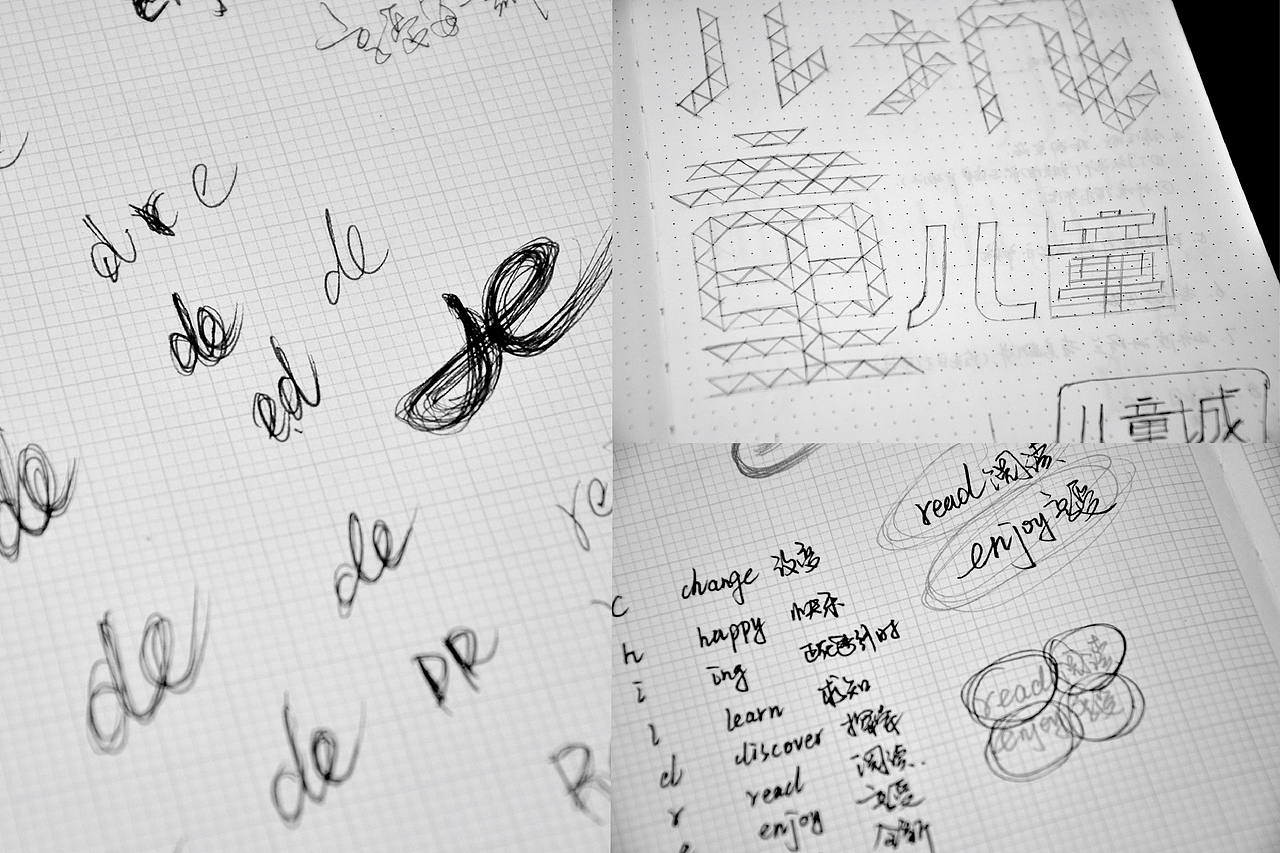 d r e
de
de
ed
de
de
de
DR
de
R
re
儿 童
儿童
儿童城
read 阅读
enjoy 享受
c change 改变
h happy 快乐
i ing
l learn 求知
d discover 探索
r read 阅读
e enjoy 享受
read 阅读
enjoy 享受